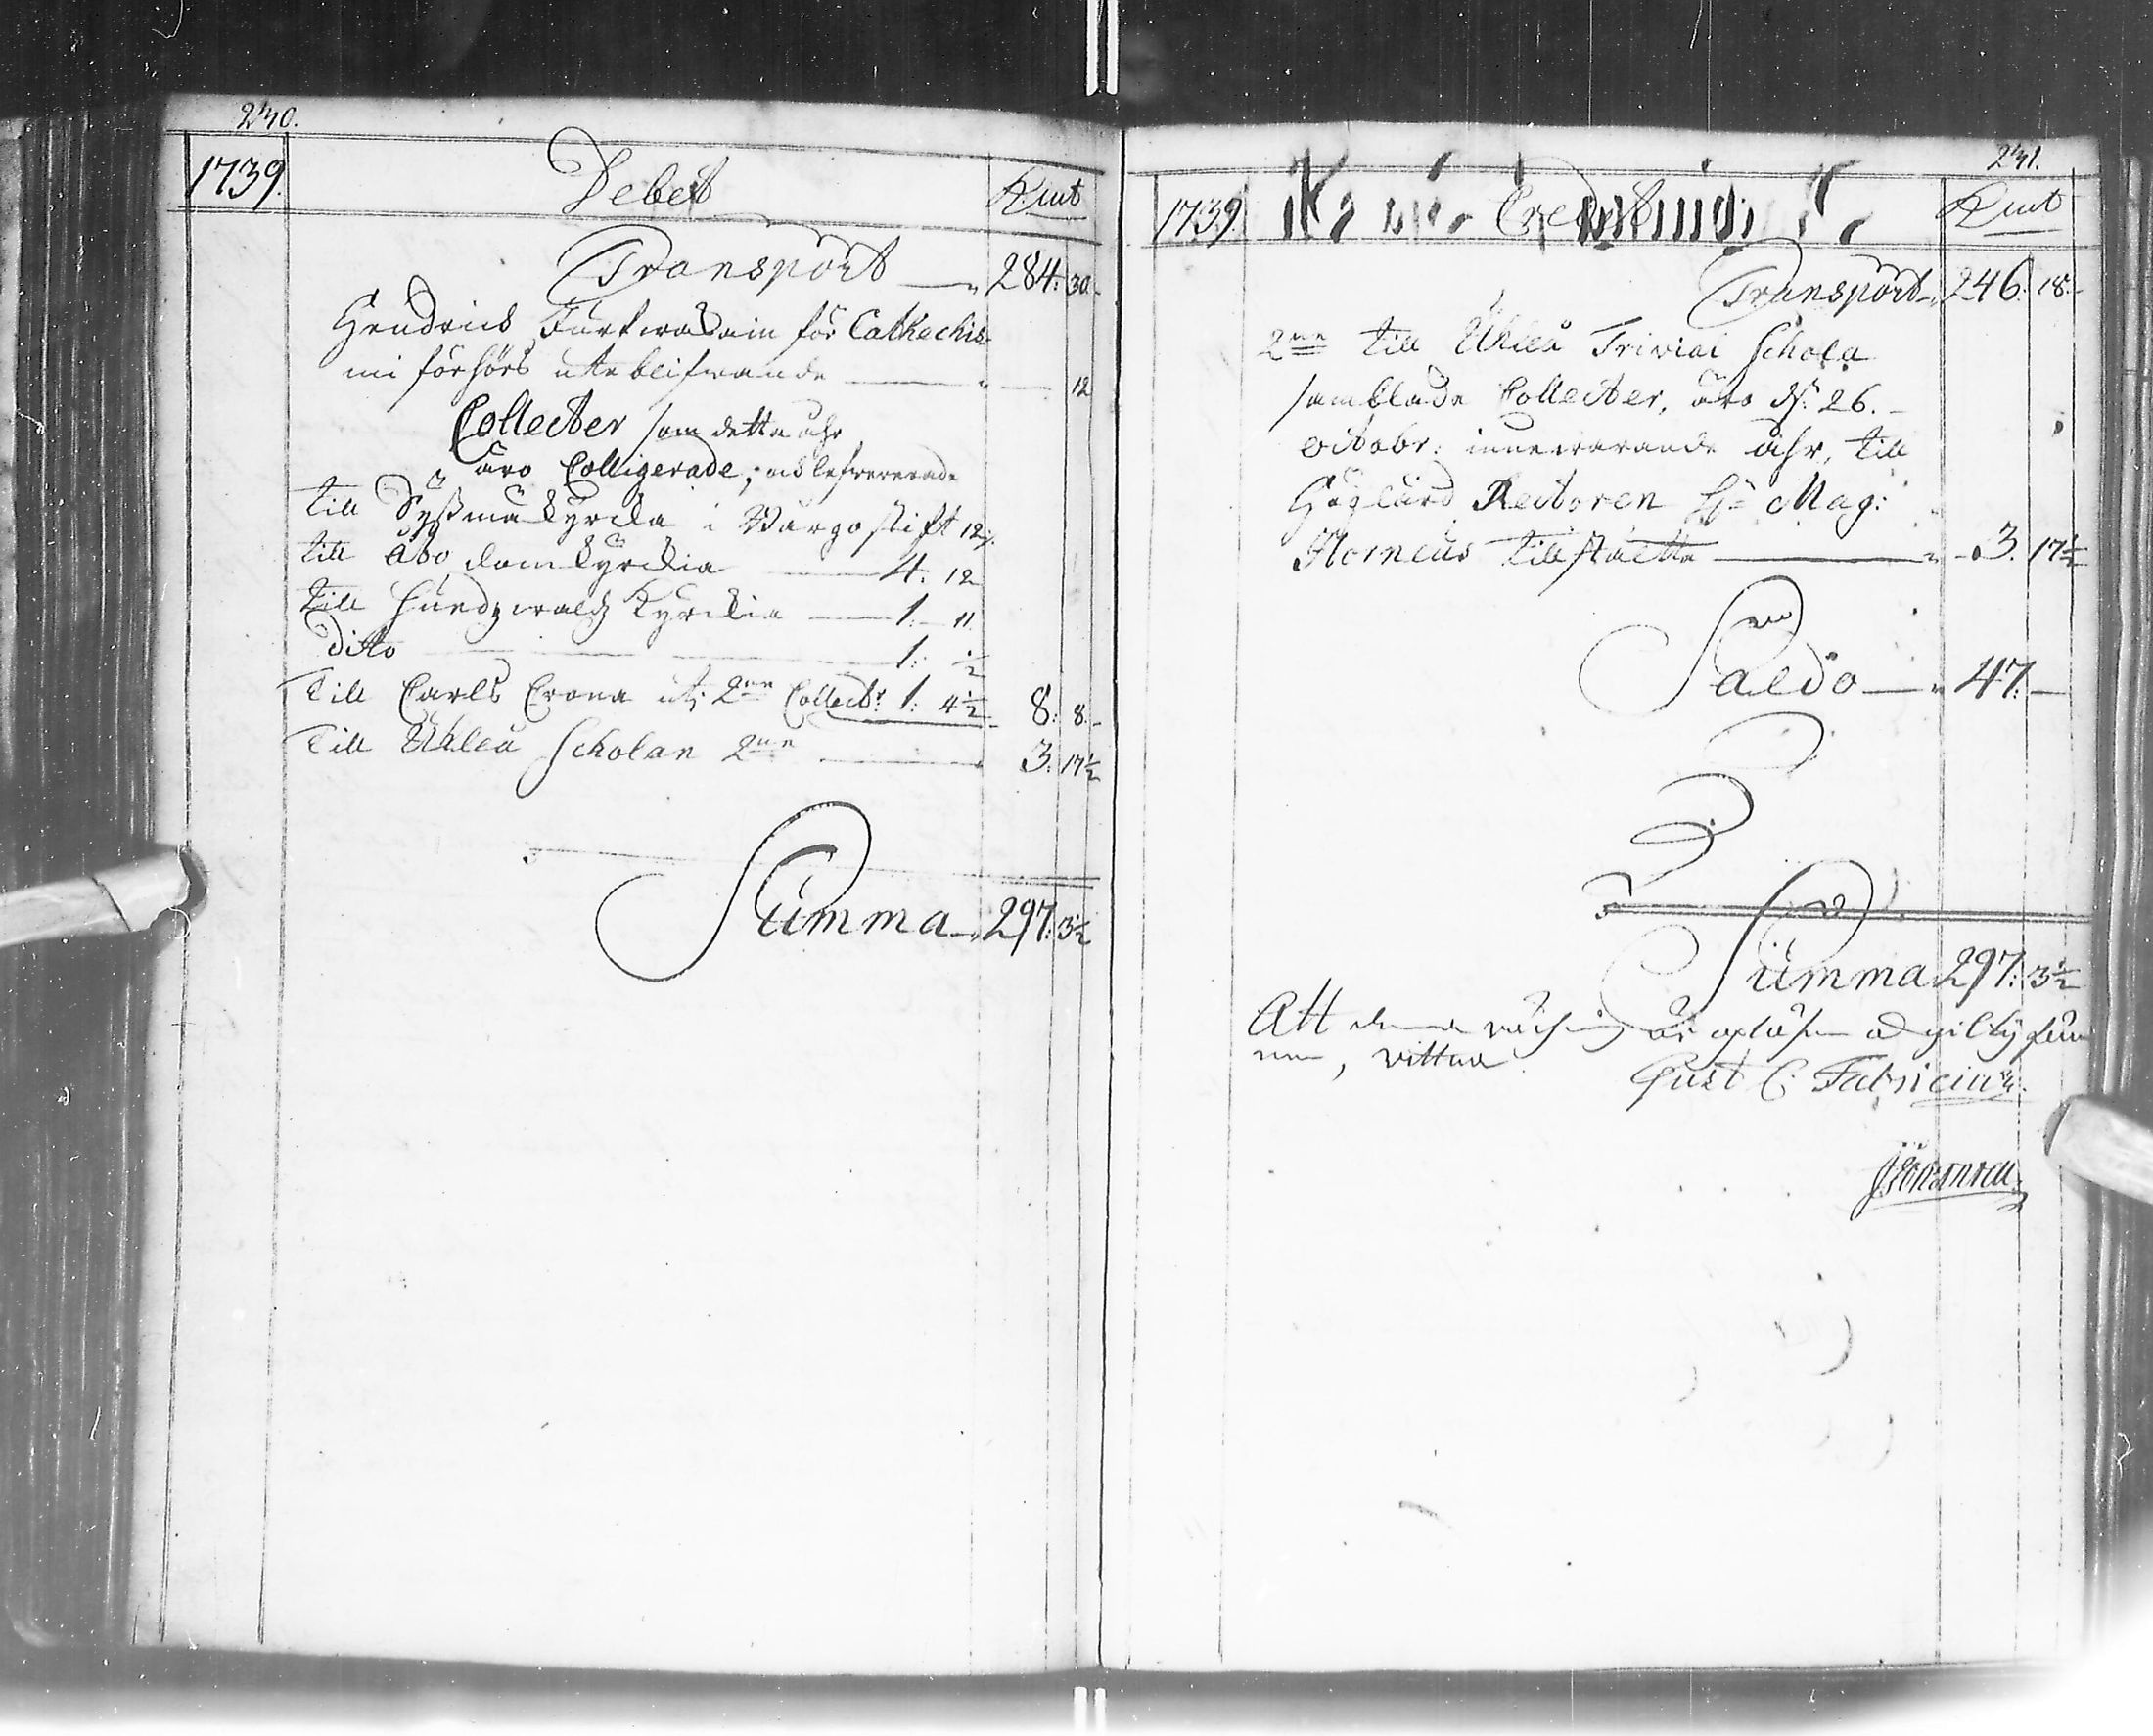 240.
1739. Debet K:mt
Transport 284: 30.
Hendrich Turkwasain för Cathechis-
mi förhörs uteblifwande 12
Collecter som detta åhr
äro Colligerade, och lefwererade
till Syßmä kyrcka i Wårgo stift 12/.
till Åbo domkyrckia 4. 12
till Hundzwaldz Kyrckia 1: 11
ditto 1: ½
till Carls Crona uti 2ne Collect: 1: 4½ 8: 8.
till Uhleå Scholan 2ne 3. 17½
Summa 297: 3½
241.
1739. Credit K:mt
Transport 246. 18.
2ne till Uhleå Trivial Schola
samblade Collecter, äro d. 26.
octobr: innewarande åhr, till
Höglärd Rectoren Hr Mag:
Forneus tillstälte 3. 17½
Saldo 47:
Summa 297: 3½
Att denna räkning är opläsen och gillig fun
nen, vittnar
Gust C: Fabricius.